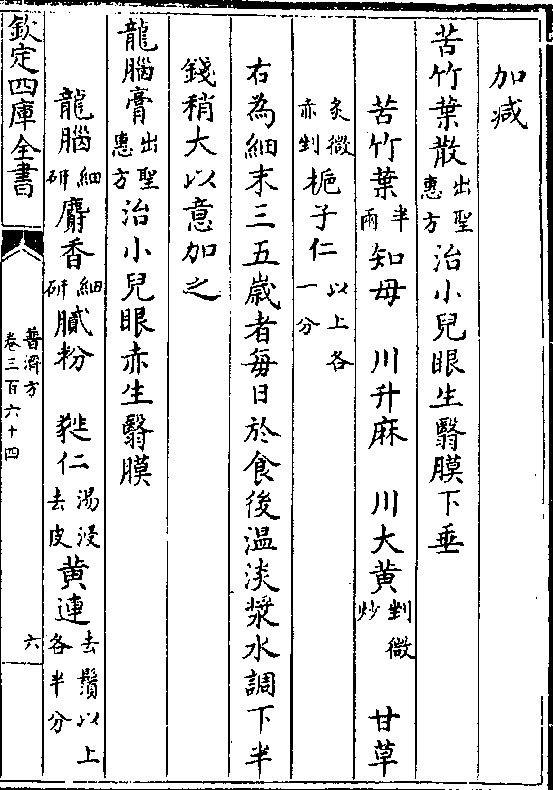 加减
苦竹葉散出聖惠方治小兒眼生翳膜下垂
苦竹葉半兩知母　川升麻　川大黄剉微炒　甘草
炙微赤剉梔子仁以上各一分
右為細末三五歳者每日於食後温淡漿水調下半
錢稍大以意加之
龍腦膏出聖惠方治小兒眼赤生翳膜
龍腦細研麝香細研膩粉　㽔仁湯浸去皮黄連去鬚以上各半分
欽定四庫全書
普濟方
卷三百六十四
六